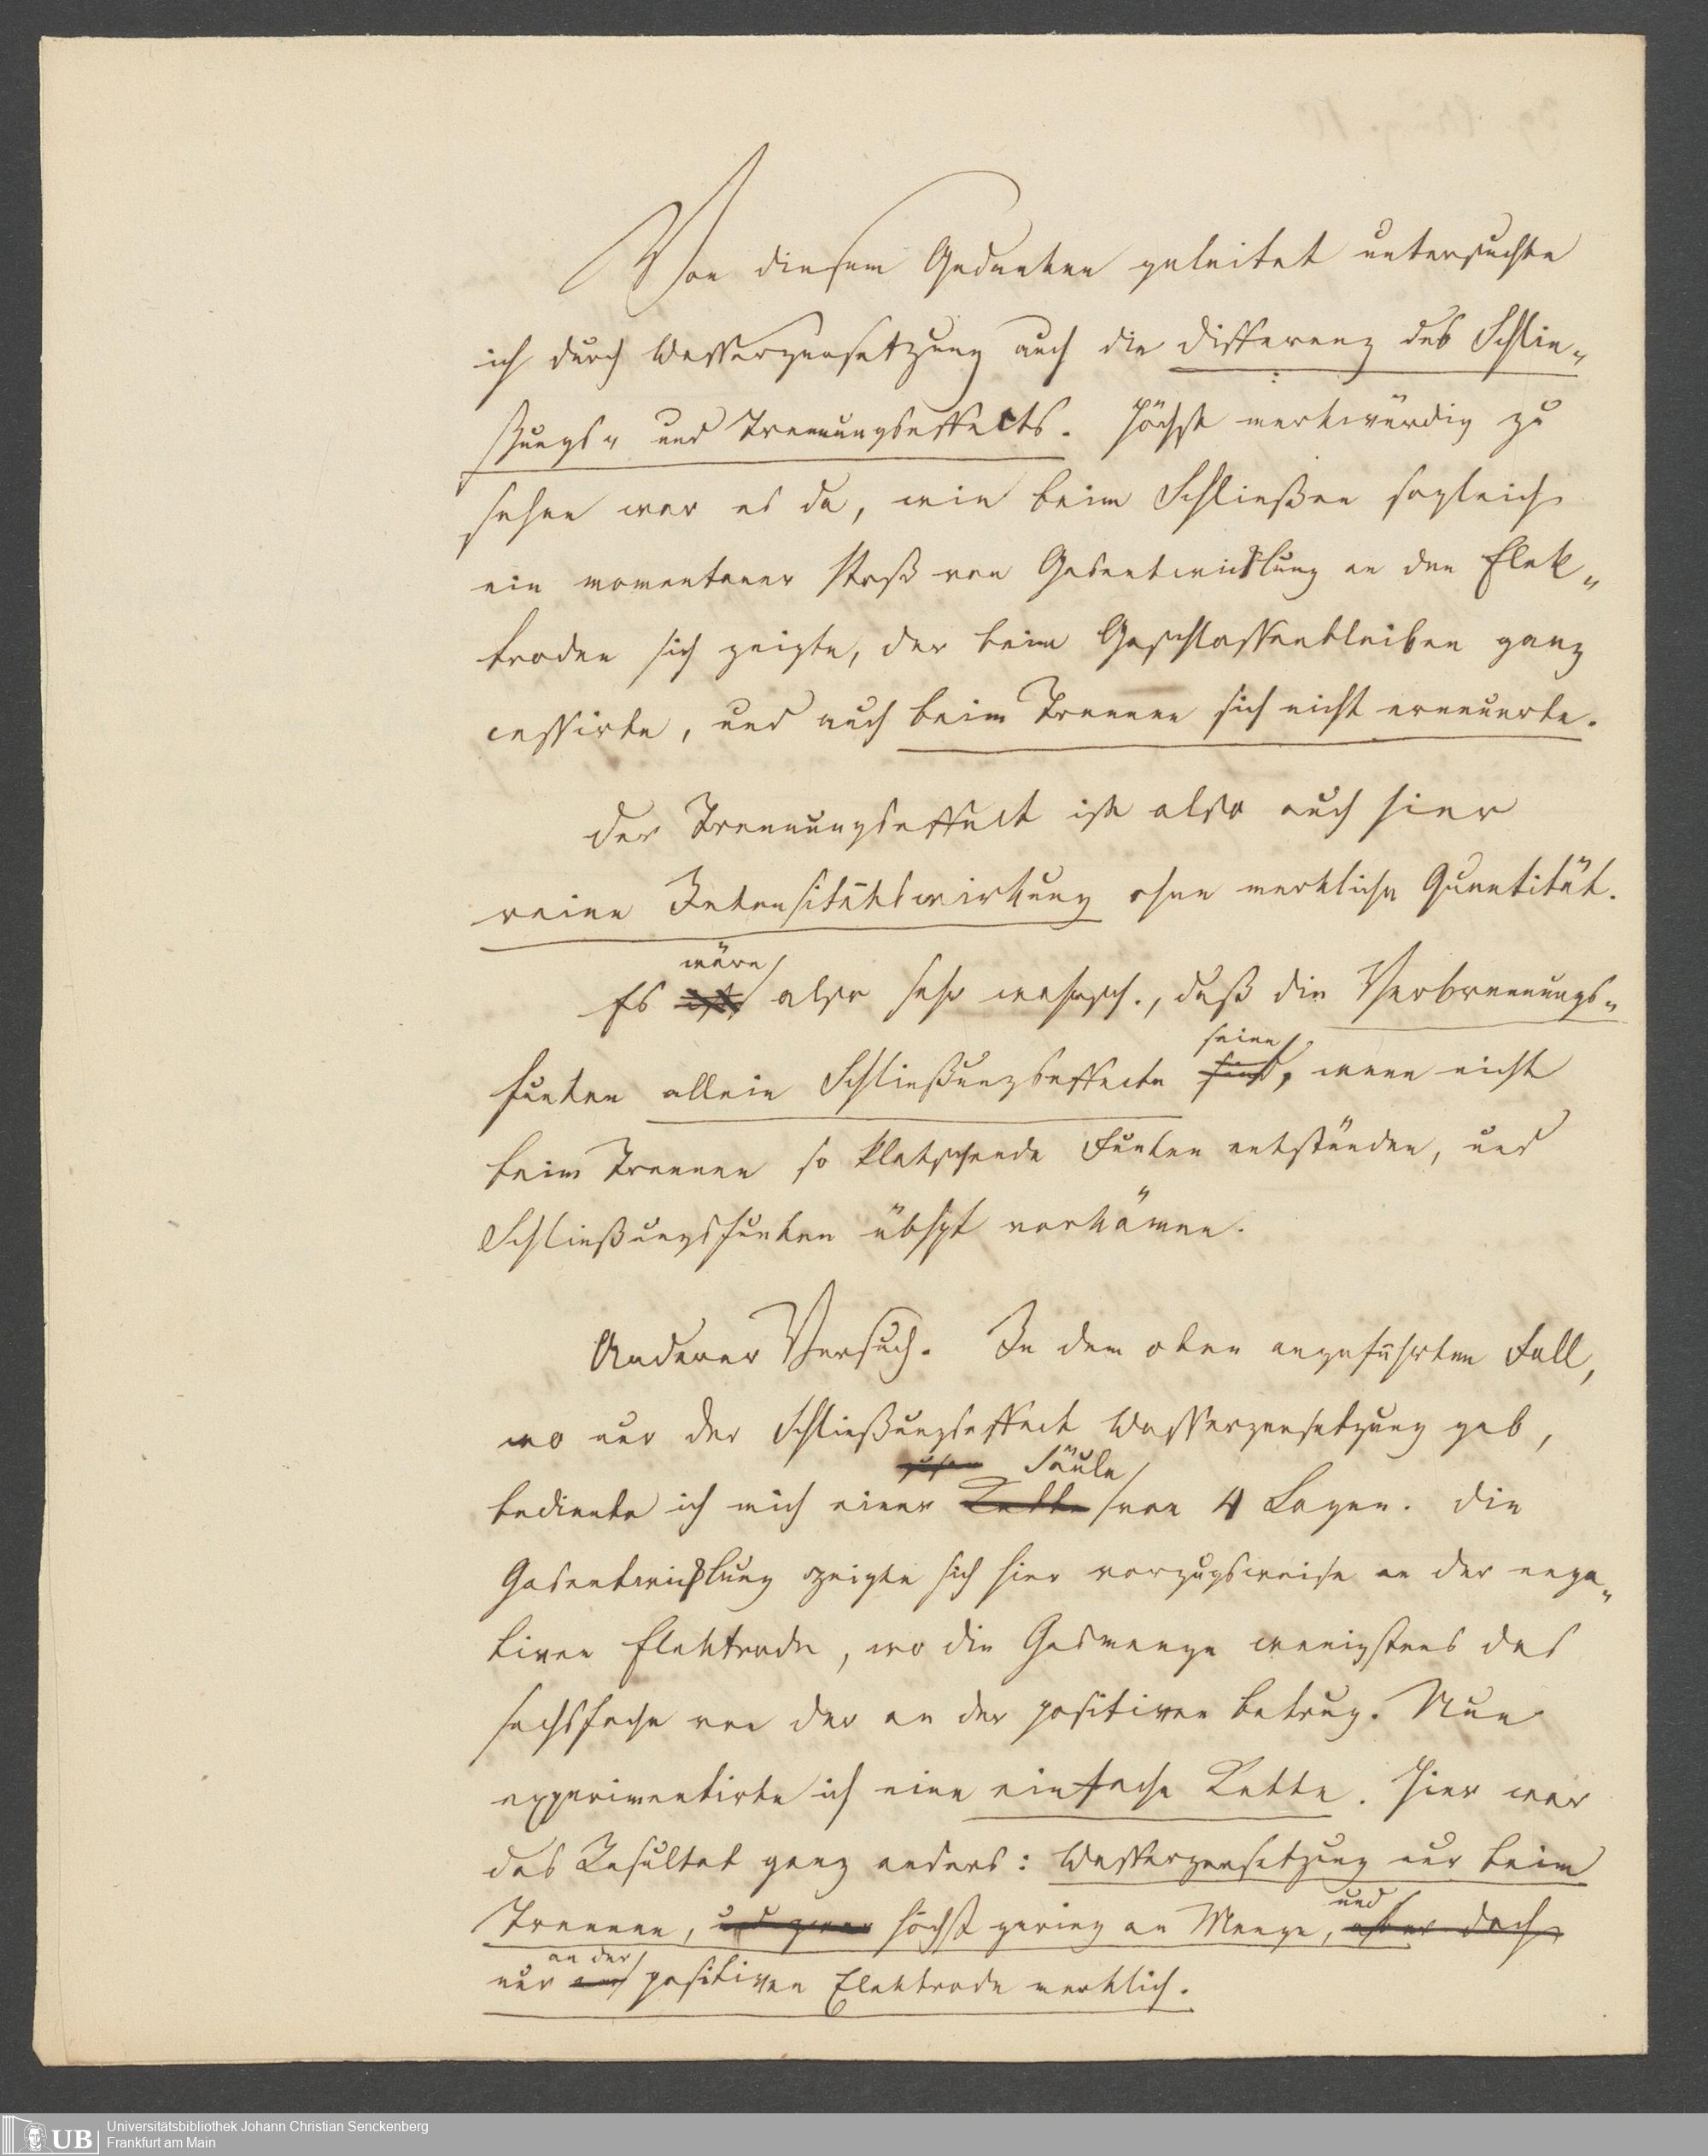 Von diesem Gedanken geleitet untersuchte
ich durch Wasserzersetzung auch die Differenz des Schlie-
ßungs- und Trennungseffects. Höchst merkwürdig zu
sehen war es da, wie beim Schließen sogleich
ein momentaner Stoß von Gasentwicklung an den Elek-
troden sich zeigte, der beim Geschlossenbleiben ganz
cessirte, und auch beim Trennen sich nicht erneuerte.
Der Trennungseffect ist also auch hier
reine Intensitätswirkung ohne merkliche Quantität.
wäre
Es ist also sehr wahrsch., daß die Verbrennungs-
seien
funken allein Schließungseffecte sind, wenn nicht
beim Trennen so klatschende Funken entständen, und
Schließungsfunken übhpt vorkämen.
Anderer Versuch. In dem oben angeführten Fall,
wo nur der Schließungseffect Wasserzersetzung gab,
Säule
bediente ich mich einer Kette von 4 Lagen. Die
Gasentwicklung zeigte sich hier vorzugsweise an der nega-
tiven Elektrode, wo die Gasmenge wenigstens das
sechsfache von der an der positiven betrug. Nun
experimentirte ich eine einfache Kette. Hier war
das Resultat ganz anders: Wasserzersetzung nur beim
und
Trennen, und zwar höchst gering an Menge, aber doch
an der
nur positiven Elektrode merklich.
Universitätsbibliothek Johann Christian Senckenberg
Frankfurt am Main
UB